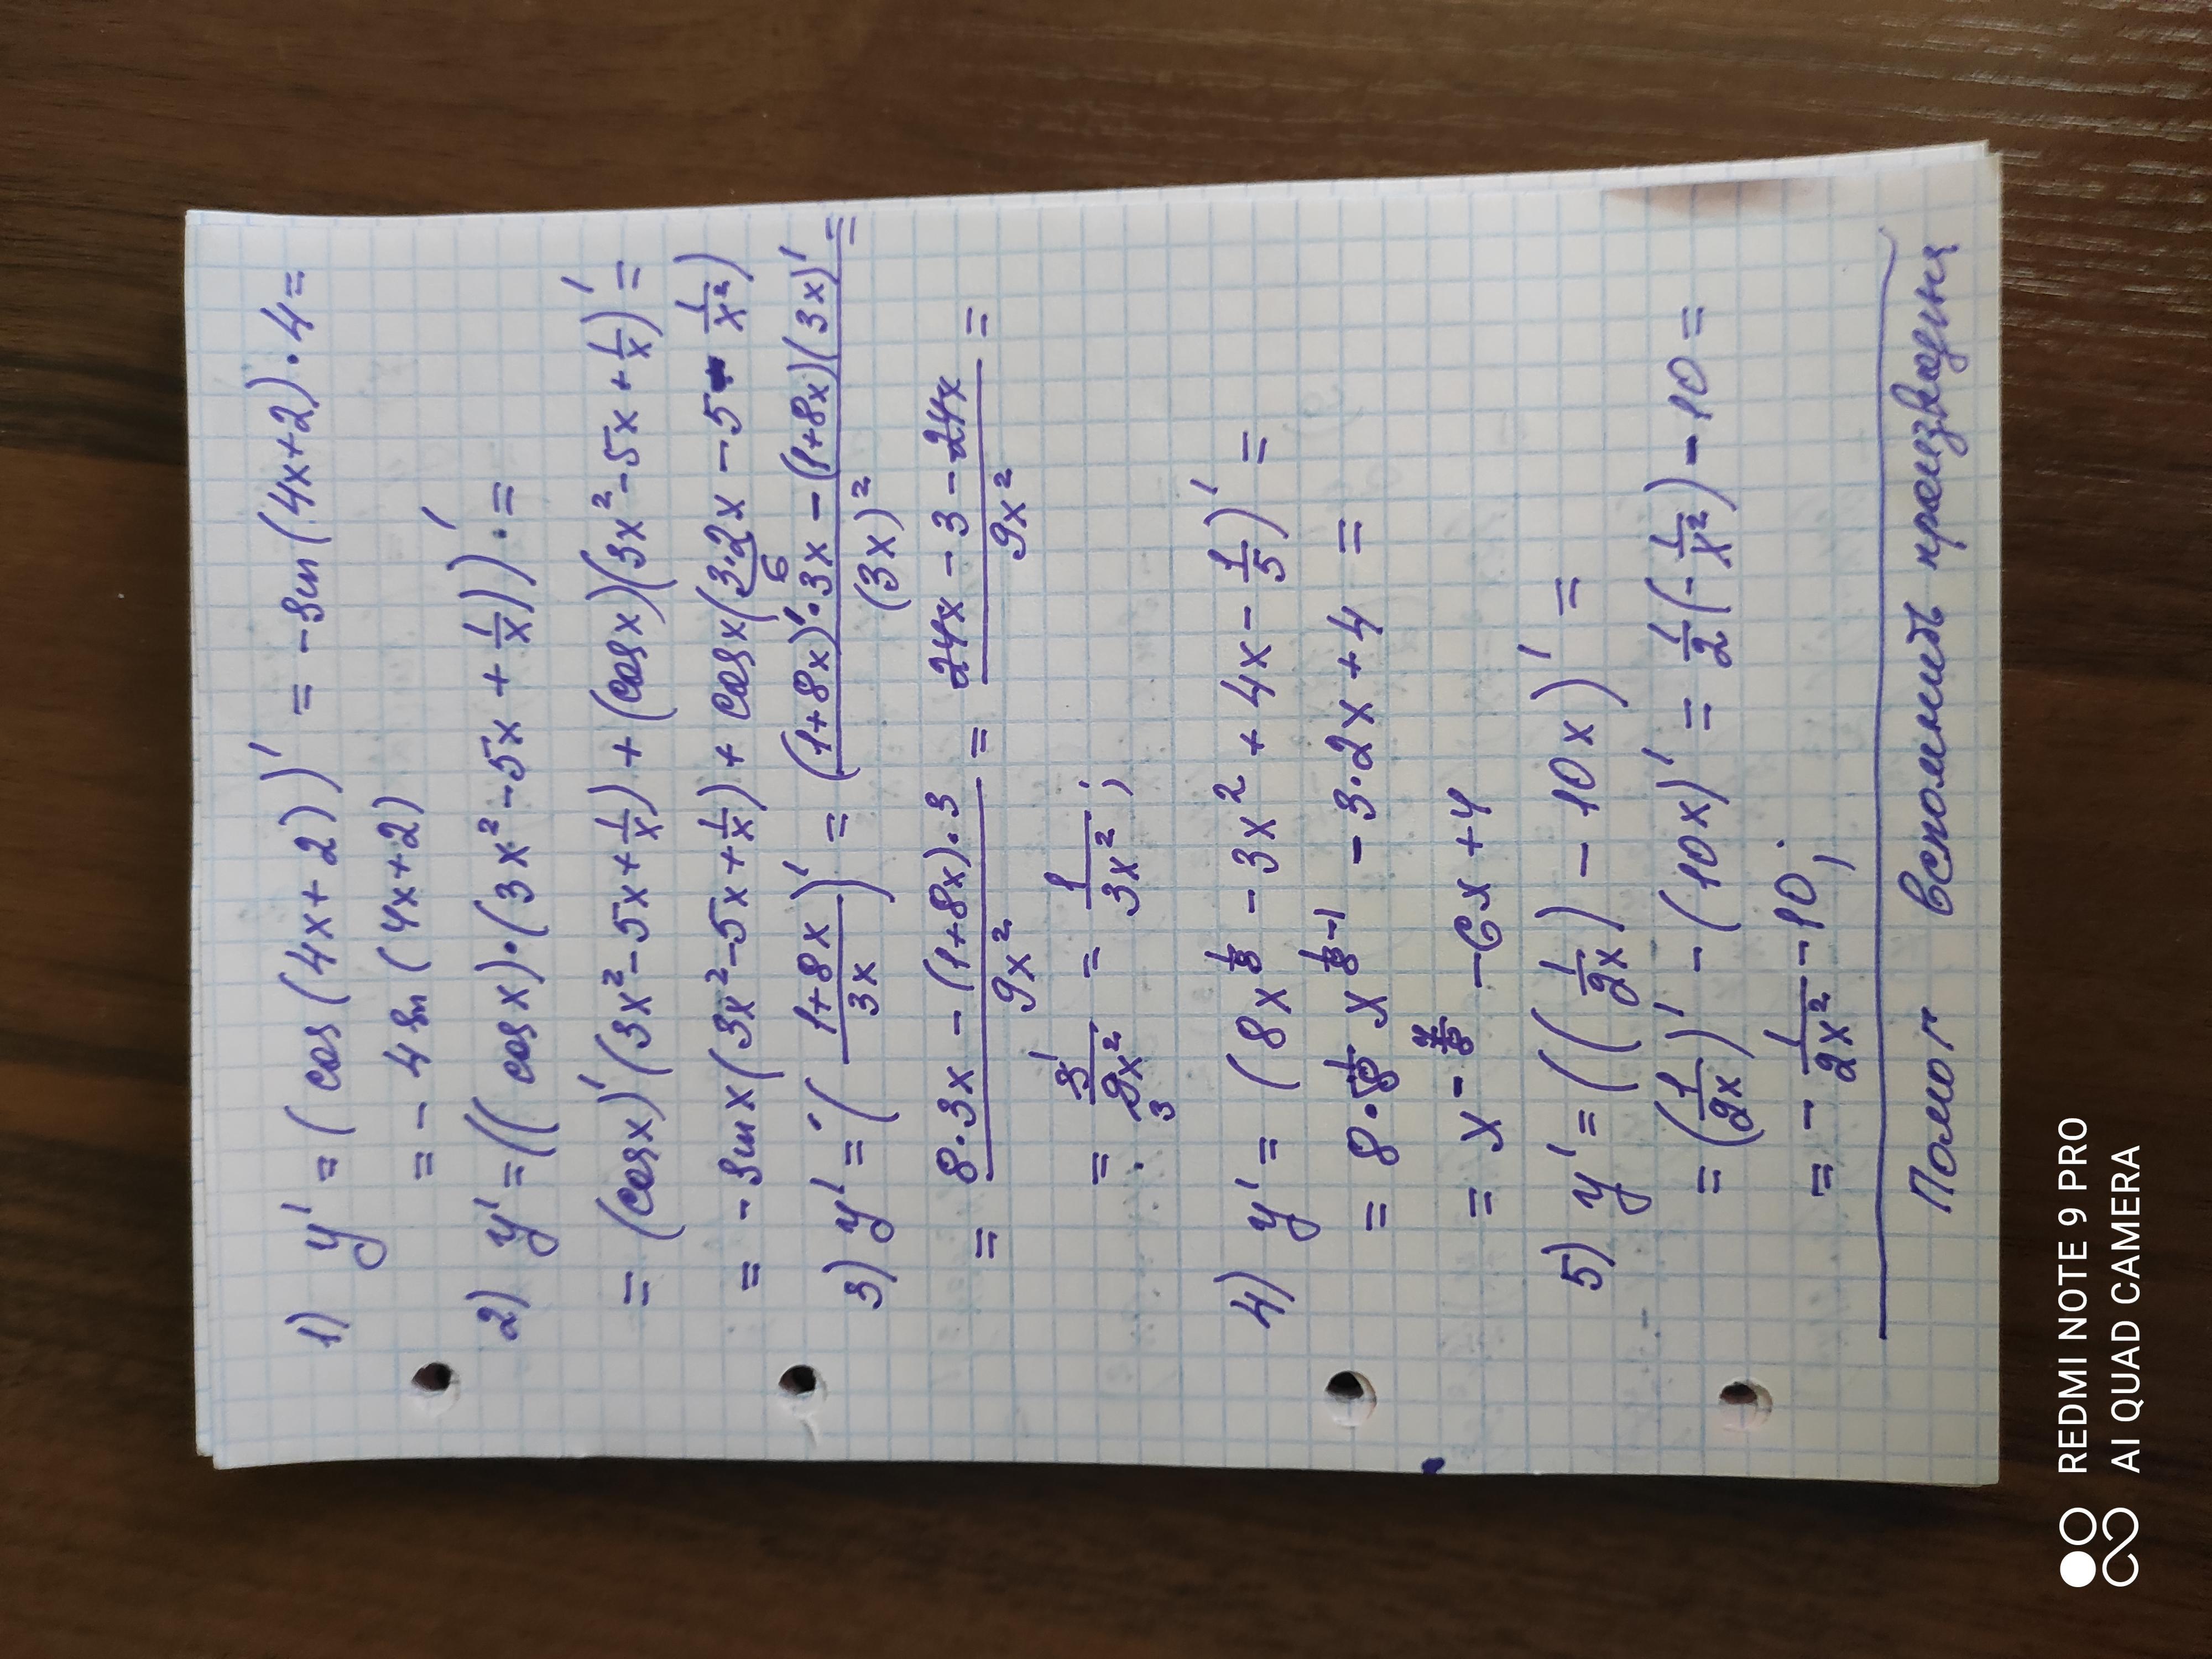 1) y' = (cos(4x+2))' = -sin(4x+2)·4=
= -4sin(4x+2)
2) y' = ((cosx)·(3x²-5x+1/x))'·=
= (cosx)'(3x²-5x+1/x)+(cosx)(3x²-5x+1/x)'=
= -sinx(3x²-5x+1/x)+cosx(3·2x-5-1/x²)
6
3) y' = ((1+8x)/3x)' = ((1+8x)'·3x-(1+8x)(3x)')/(3x)² =
= (8·3x-(1+8x)·3)/9x² = (24x-3-24x)/9x² =
= 3/9x² = 1/3x²;
1
3
4) y' = (8x^(1/8)-3x²+4x-1/5)' =
= 8·1/8x^(1/8-1)-3·2x+4 =
= x^(-7/8)-6x+4
5) y' = ((1/2x)-10x)' =
= (1/2x)'-(10x)' = 1/2(-1/x²)-10=
= -1/2x²-10;
вспомнить
REDMI NOTE 9 PRO
AI QUAD CAMERA